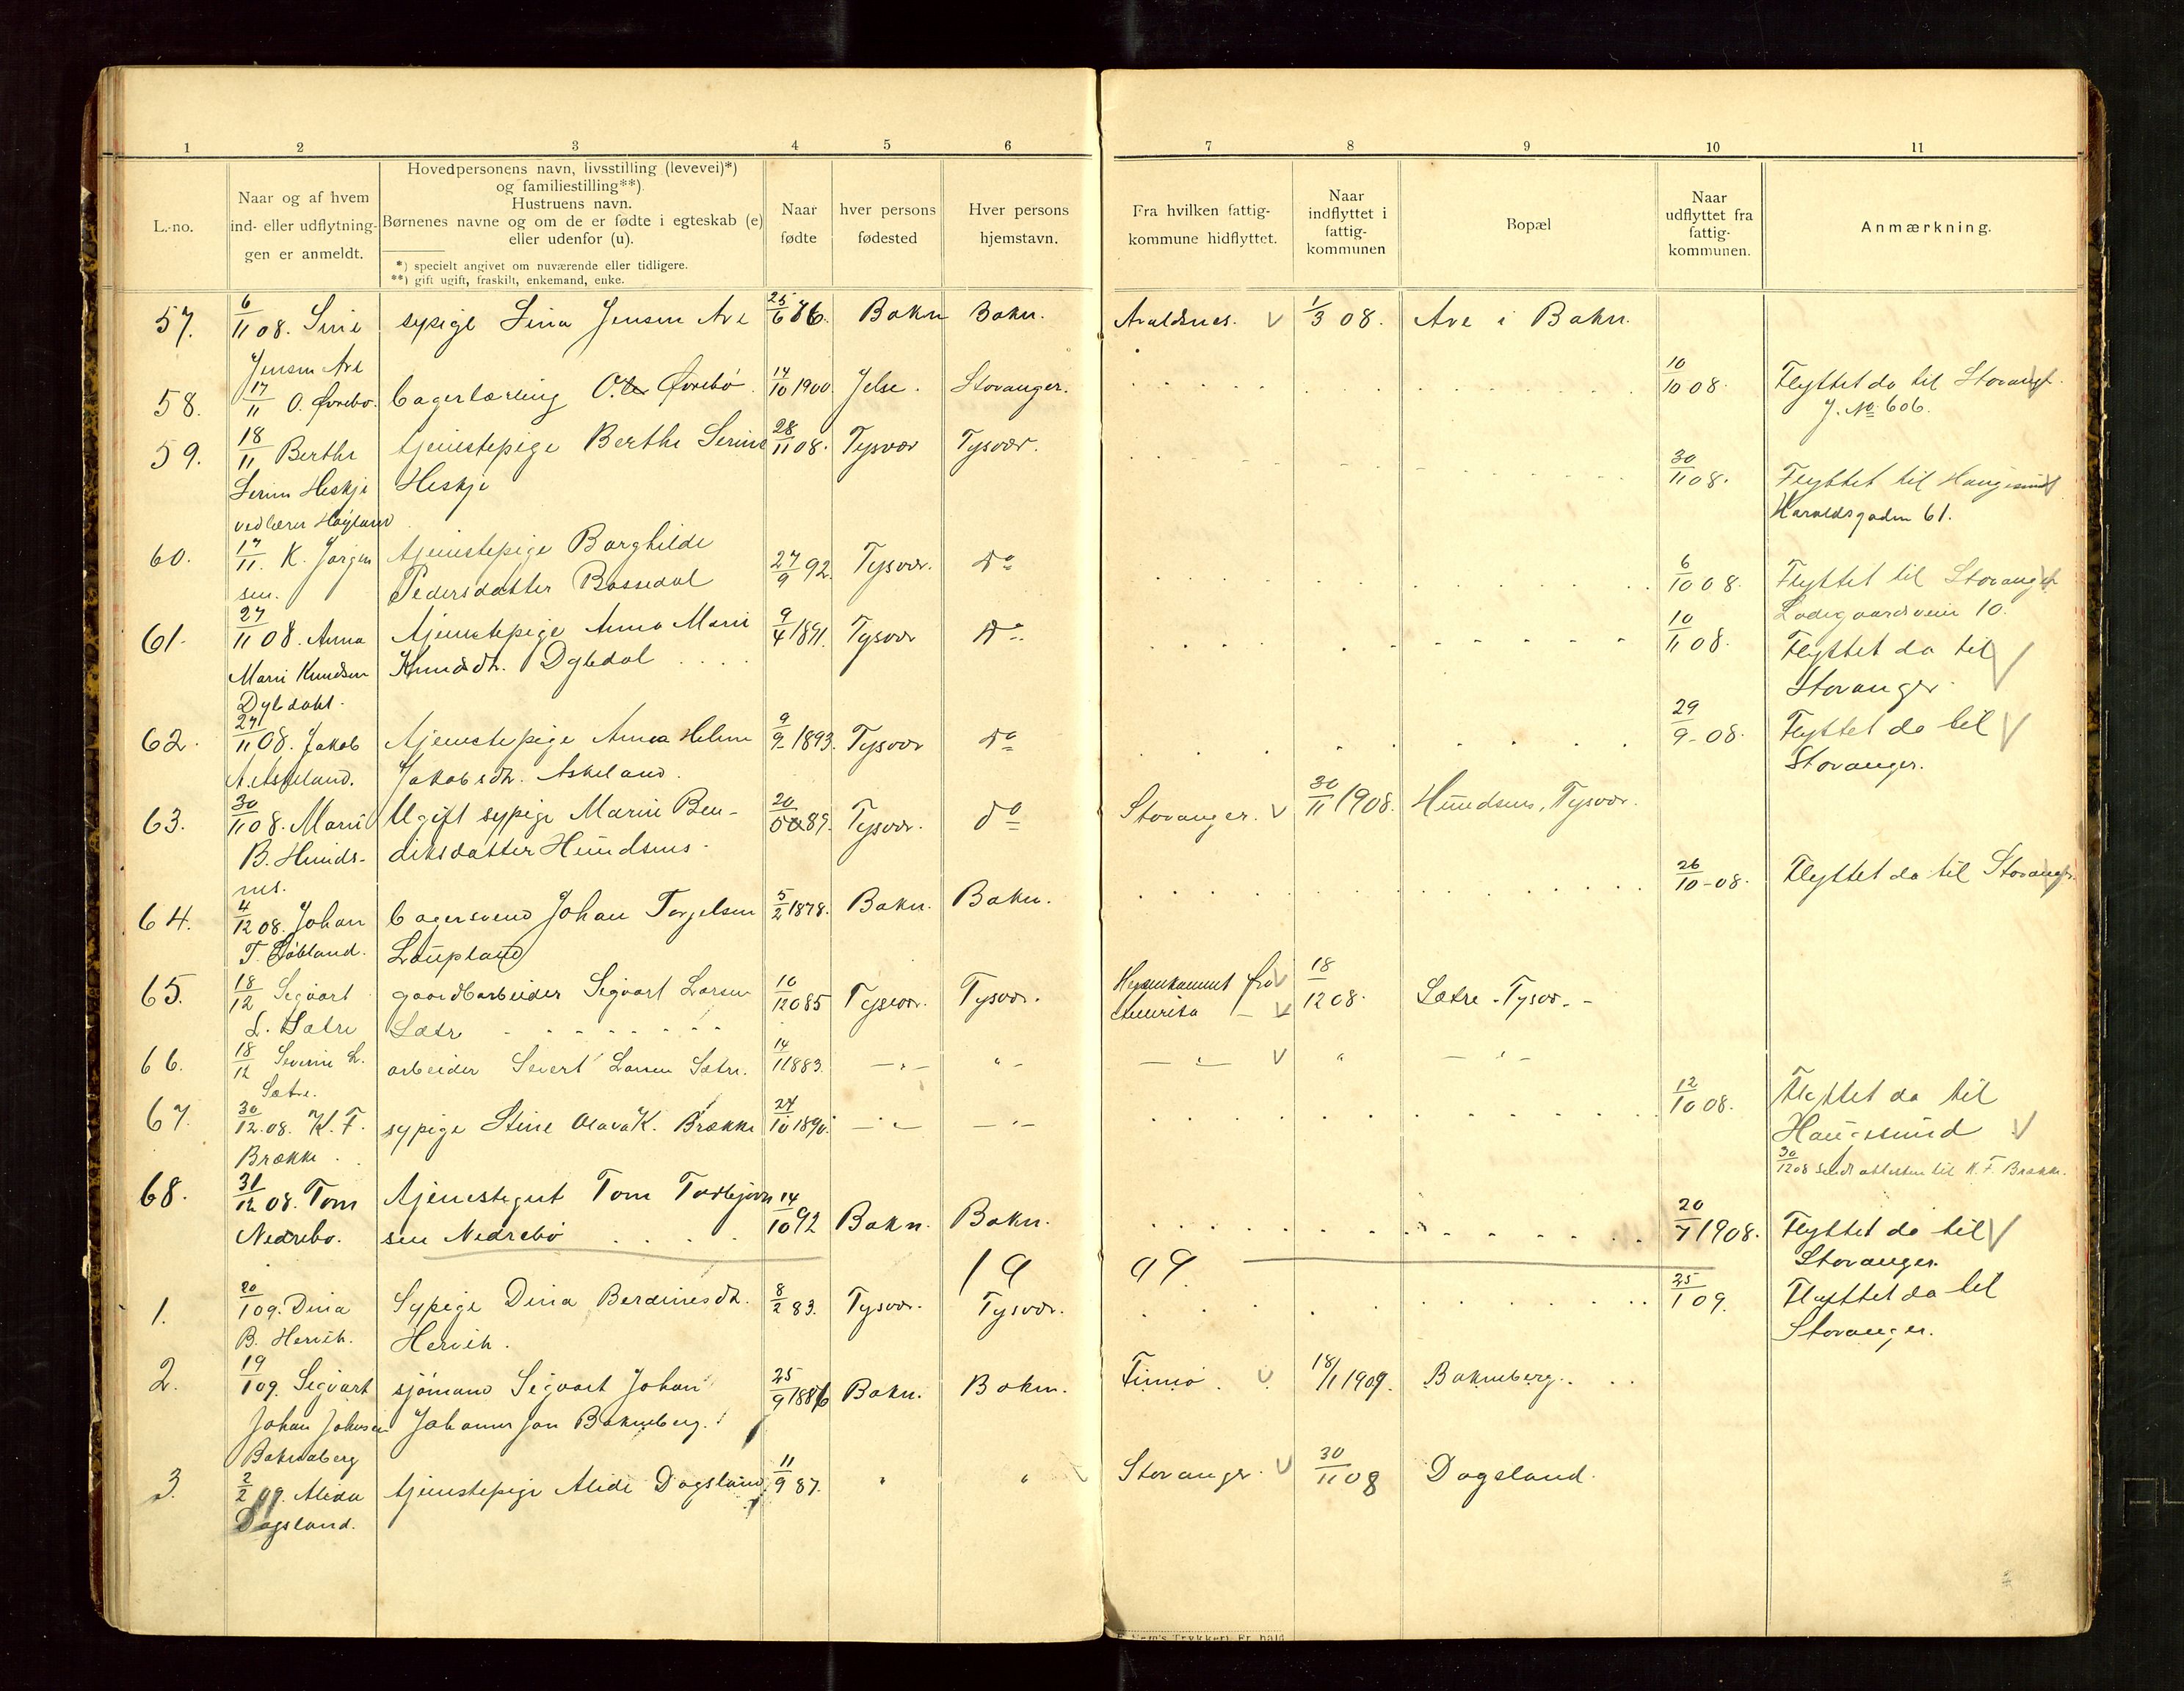 1 2 3 4 5 6 7 8 9 10 11
L.-no.
Naar og af hvem
ind- eller udflytnin-
gen er anmeldt.
Hovedpersonens navn, livsstilling (levevei)*)
og familiestilling**).
Hustruens navn.
Børnenes navne og om de er fødte i egteskab (e)
eller udenfor (u).
*) specielt angivet om nuværende eller tidligere.
**) gift ugift, fraskilt, enkemand, enke.
Naar
fødte
hver persons
fødested
Hver persons
hjemstavn.
Fra hvilken fattig-
kommune hidflyttet.
Naar
indflyttet i
fattig-
kommunen
Bopæl
Naar
udflyttet fra
fattig-
kommunen.
Anmærkning.
57. 6/11 08. Sine sypige Sina Jensen Are 25/6 86. Bokn Bokn. Avaldsnes. 1/3 08. Are i Bokn.
Jensen Are
58. 17/11 O. Øvrebø. bagerlærling O. Øvrebø. 14/10 1900. Jelse. Stavanger. 10/10 08. Flyttet da til Stavanger.
J. No 606.
59. 18/11 Berthe tjenestepige Berthe Serine 28/11 08. Tysvær Tysvær. 30/11 08. Flyttet til Haugesund
Serine Heskje Heskje Haraldsgaden 61.
ved lærer Høyland
60. 17/11. K. Jørgen tjenestepige Borghilde 27/9 92. Tysvær. do 6/10 08. Flyttet til Stavanger
sen. Pedersdatter Bassedal Ladegaardsveien 10.
61. 27/11 08. Anna tjenestepige Anna Marie 9/4 1891. Tysvær do 10/11 08. Flyttet da til
Marie Knudsen Knudsdtr. Dybdal Stavanger.
Dybdahl.
62. 27/11 08. Jakob tjenestepige Anna Helene 9/9 1893. Tysvær do 29/9 - 08. Flyttet da til
A. Askeland. Jakobsdtr. Askeland. Stavanger.
63. 30/11 08. Marie Ugift sypige Marie Ben- 20/ 89. Tysvær. do Stavanger. 30/11 1908. Hundsnes, Tysvær.
B. Hunds- diksdatter Hundsnes.
nes.
64. 4/12 08. Johan bagersvend Johan Torjelsen 5/2 1878. Bokn. Bokn. 26/10 - 08. Flyttet da til Stavanger
T. Løbland. Laupland
65. 18/12 Sigvart gaardbarbeider Sigvart Larsen 10/12 85 Tysvær. Tysvær. Hjemkommet fra 18/12 08. Sætre - Tysvær.
L. Sætre Sætre Amerika
66. 18/12 Severin L. arbeider Sivert Larsen Sætre. 14/1 1883. — " — " - — " — " — " —
Sætre.
67. 30/12. 08. K. F. sypige Stine Olava K. Brække 24/10 1890. — " — — " — 12/10 08. Flyttet da til
Brække. Haugesund
30/12 08 sendt attesten til K. F. Brække.
68. 31/12 08. Tom tjenestegut Tom Torbjørn 14/10 92 Bokn. Bokn. 20/ 1908. Flyttet da til
Nedrebø. sen Nedrebø Stavanger.
19 09.
1. 20/1 09. Dina Sypige Dina Berdinesdtr. 8/2 83. Tysvær. Tysvær. 25/1 09. Flyttet da til
B. Hervik. Hervik. Stavanger.
2. 19/1 09. Sigvart sjømand Sigvart Johan 25/9 1886 Bokn. Bokn. Finnø. 18/1 1909. Bokneberg.
Johan Johansen Johannessen Bokneberg.
Bokneberg
3. 2/2 09. Alida tjenestepige Alide Dagsland 11/9 87. " " Stavanger. 30/11 08 Dagsland.
Dagsland.